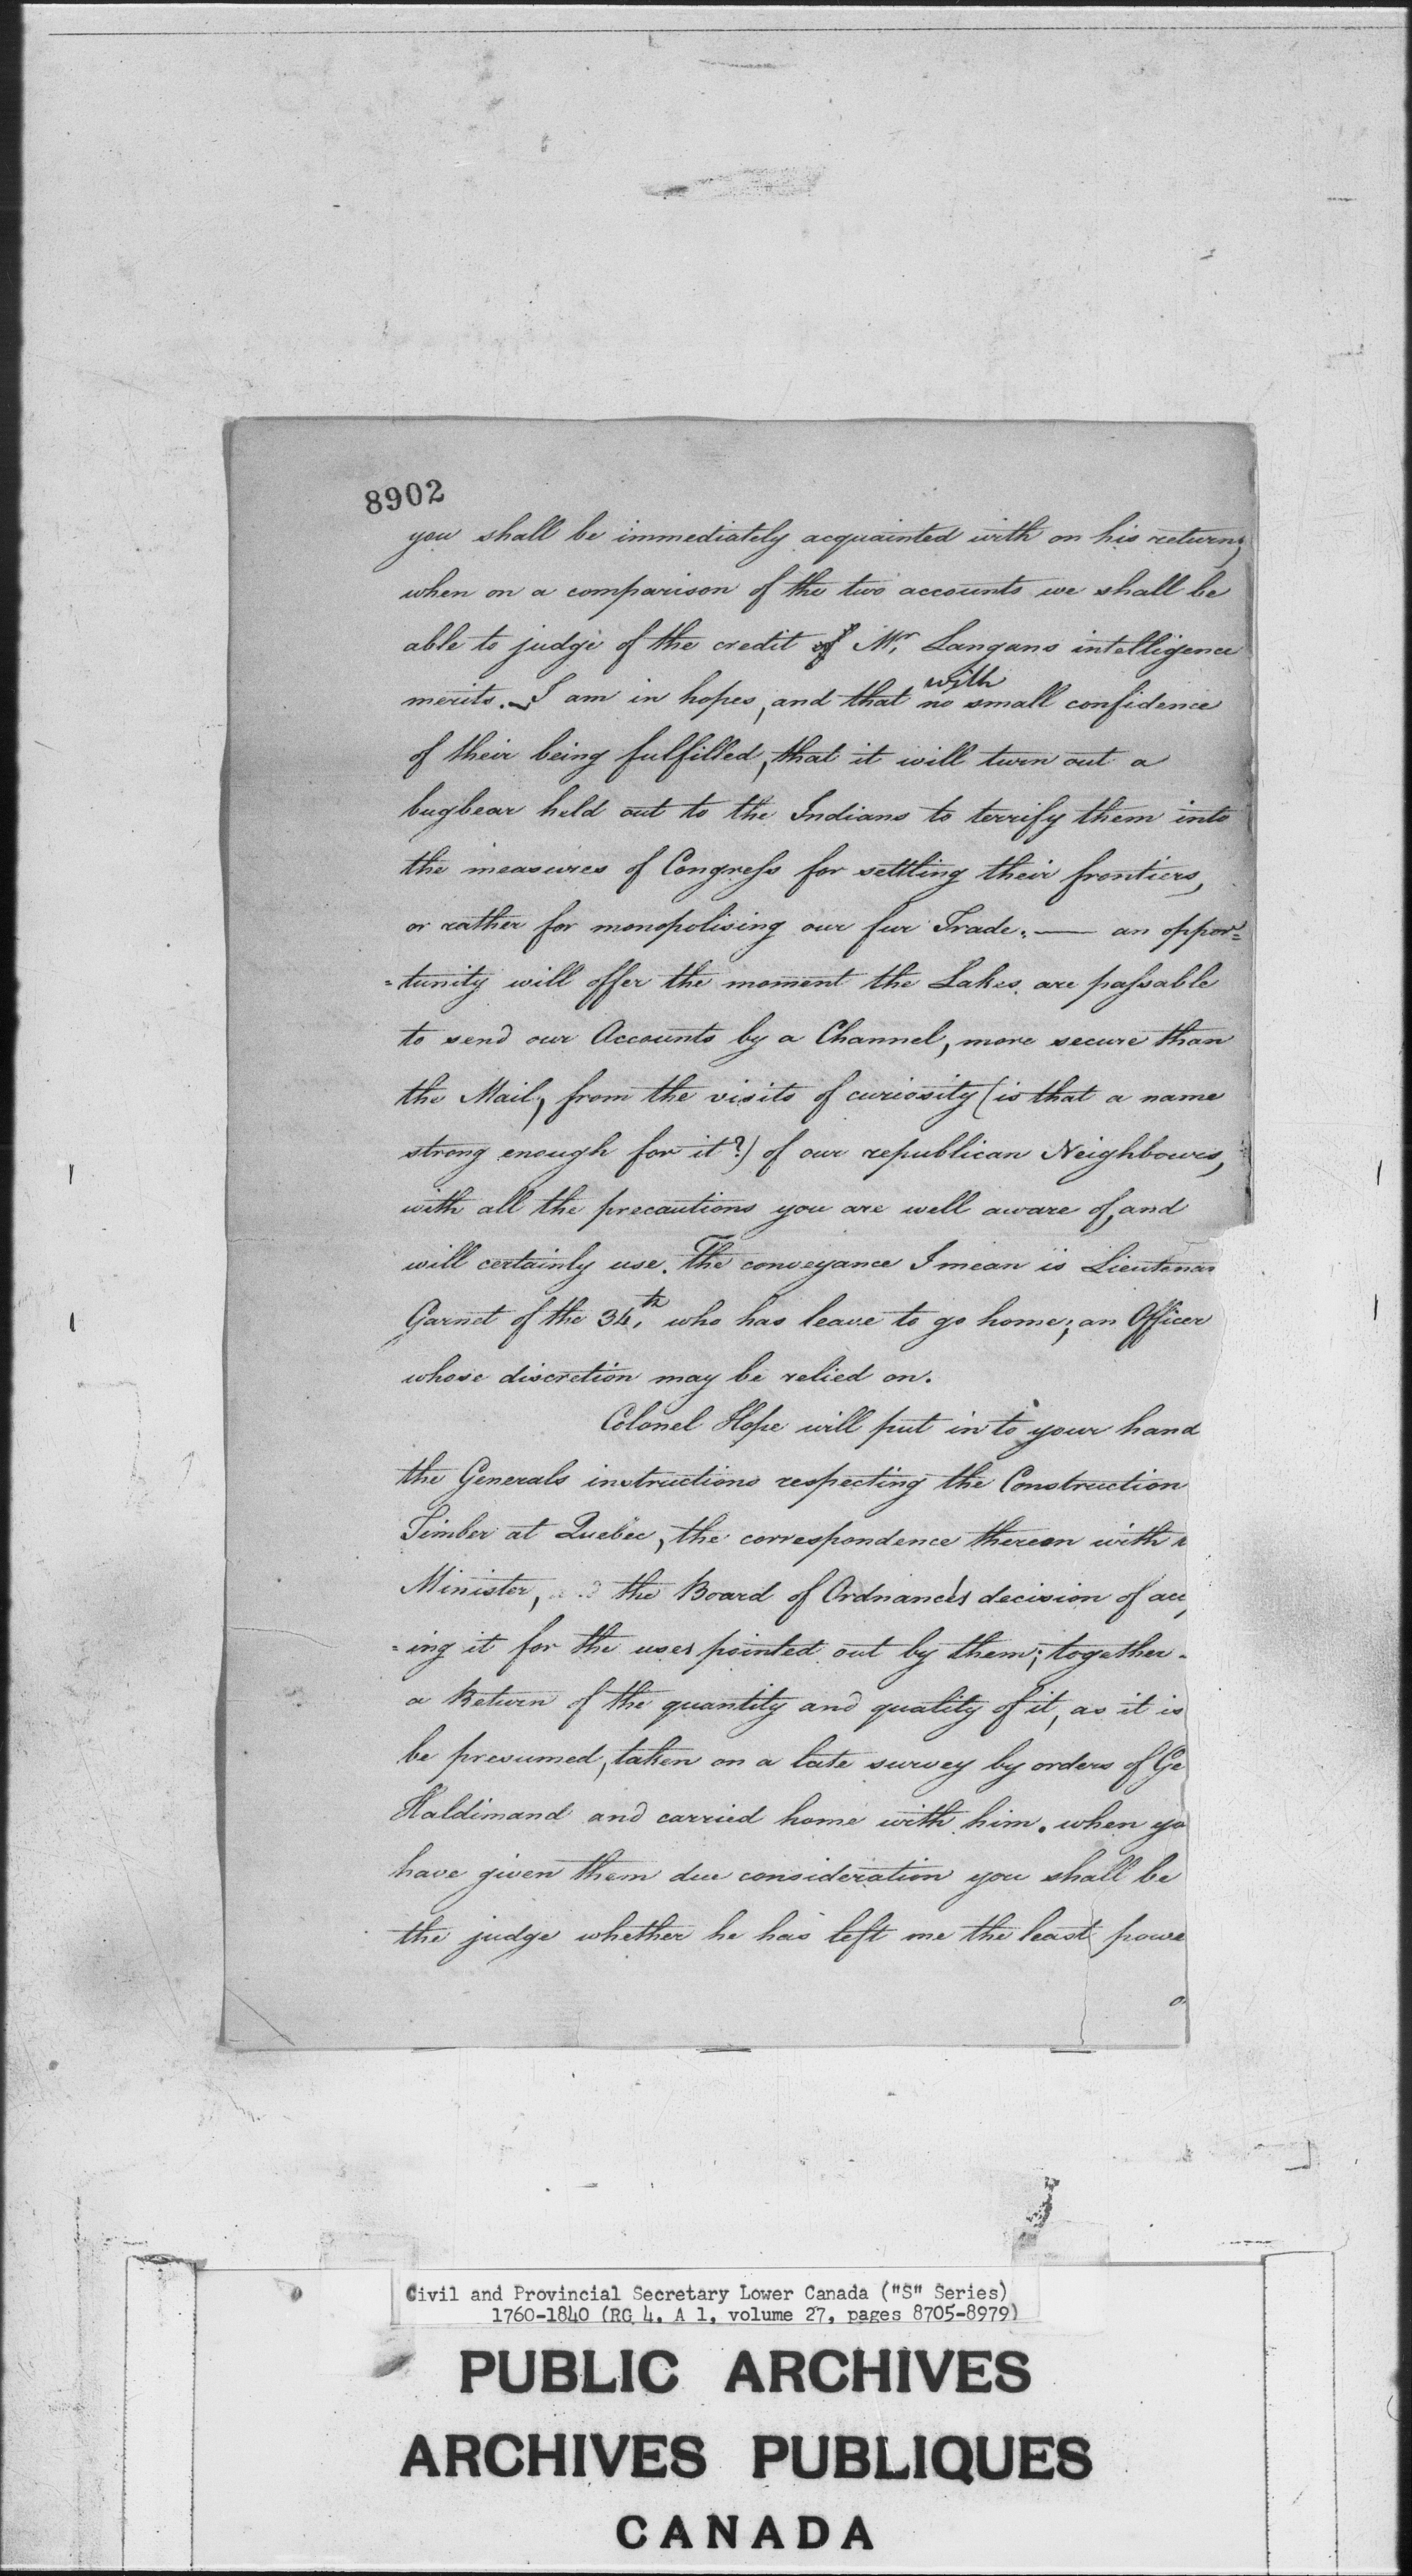 8902
you shall be immediately acquainted with on his return;
when on a comparison of the two accounts we shall be
able to judge of the credit of Mr. Langans intelligence
with
merits. I am in hopes, and that no small confidence
of their being fulfilled, that it will turn out a
bugbear held out to the Indians to terrify them into
the measures of Congress for settling their frontiers,
or rather for monopolising our fur Trade. — an oppor=
=tunity will offer the moment the Lakes are passable
to send our Accounts by a Channel, more secure than
the Mail, from the visits of curiosity (is that a name
strong enough for it?) of our republican Neighbours,
with all the precautions you are well aware of, and
will certainly use. The conveyance I mean is Lieutenan
Garnet of the 34th. who has leave to go home; an Officer
whose discretion may be relied on.
Colonel Hope will put in to your hand
the Generals instructions respecting the Construction
Timber at Quebec, the correspondence thereon with
Minister, the Board of Ordnance's decision of acc
=ing it for the uses pointed out by them; together
a Return of the quantity and quality of it, as it is
be presumed, taken on a late survey by orders of Ge
Haldimand and carried home with him. when yo
have given them due consideration you shall be
the judge whether he has left me the least powe
o
Civil and Provincial Secretary Lower Canada ("S" Series)
1760-1840 (RG 4, A 1, volume 27, pages 8705-8979)
PUBLIC ARCHIVES
ARCHIVES PUBLIQUES
CANADA